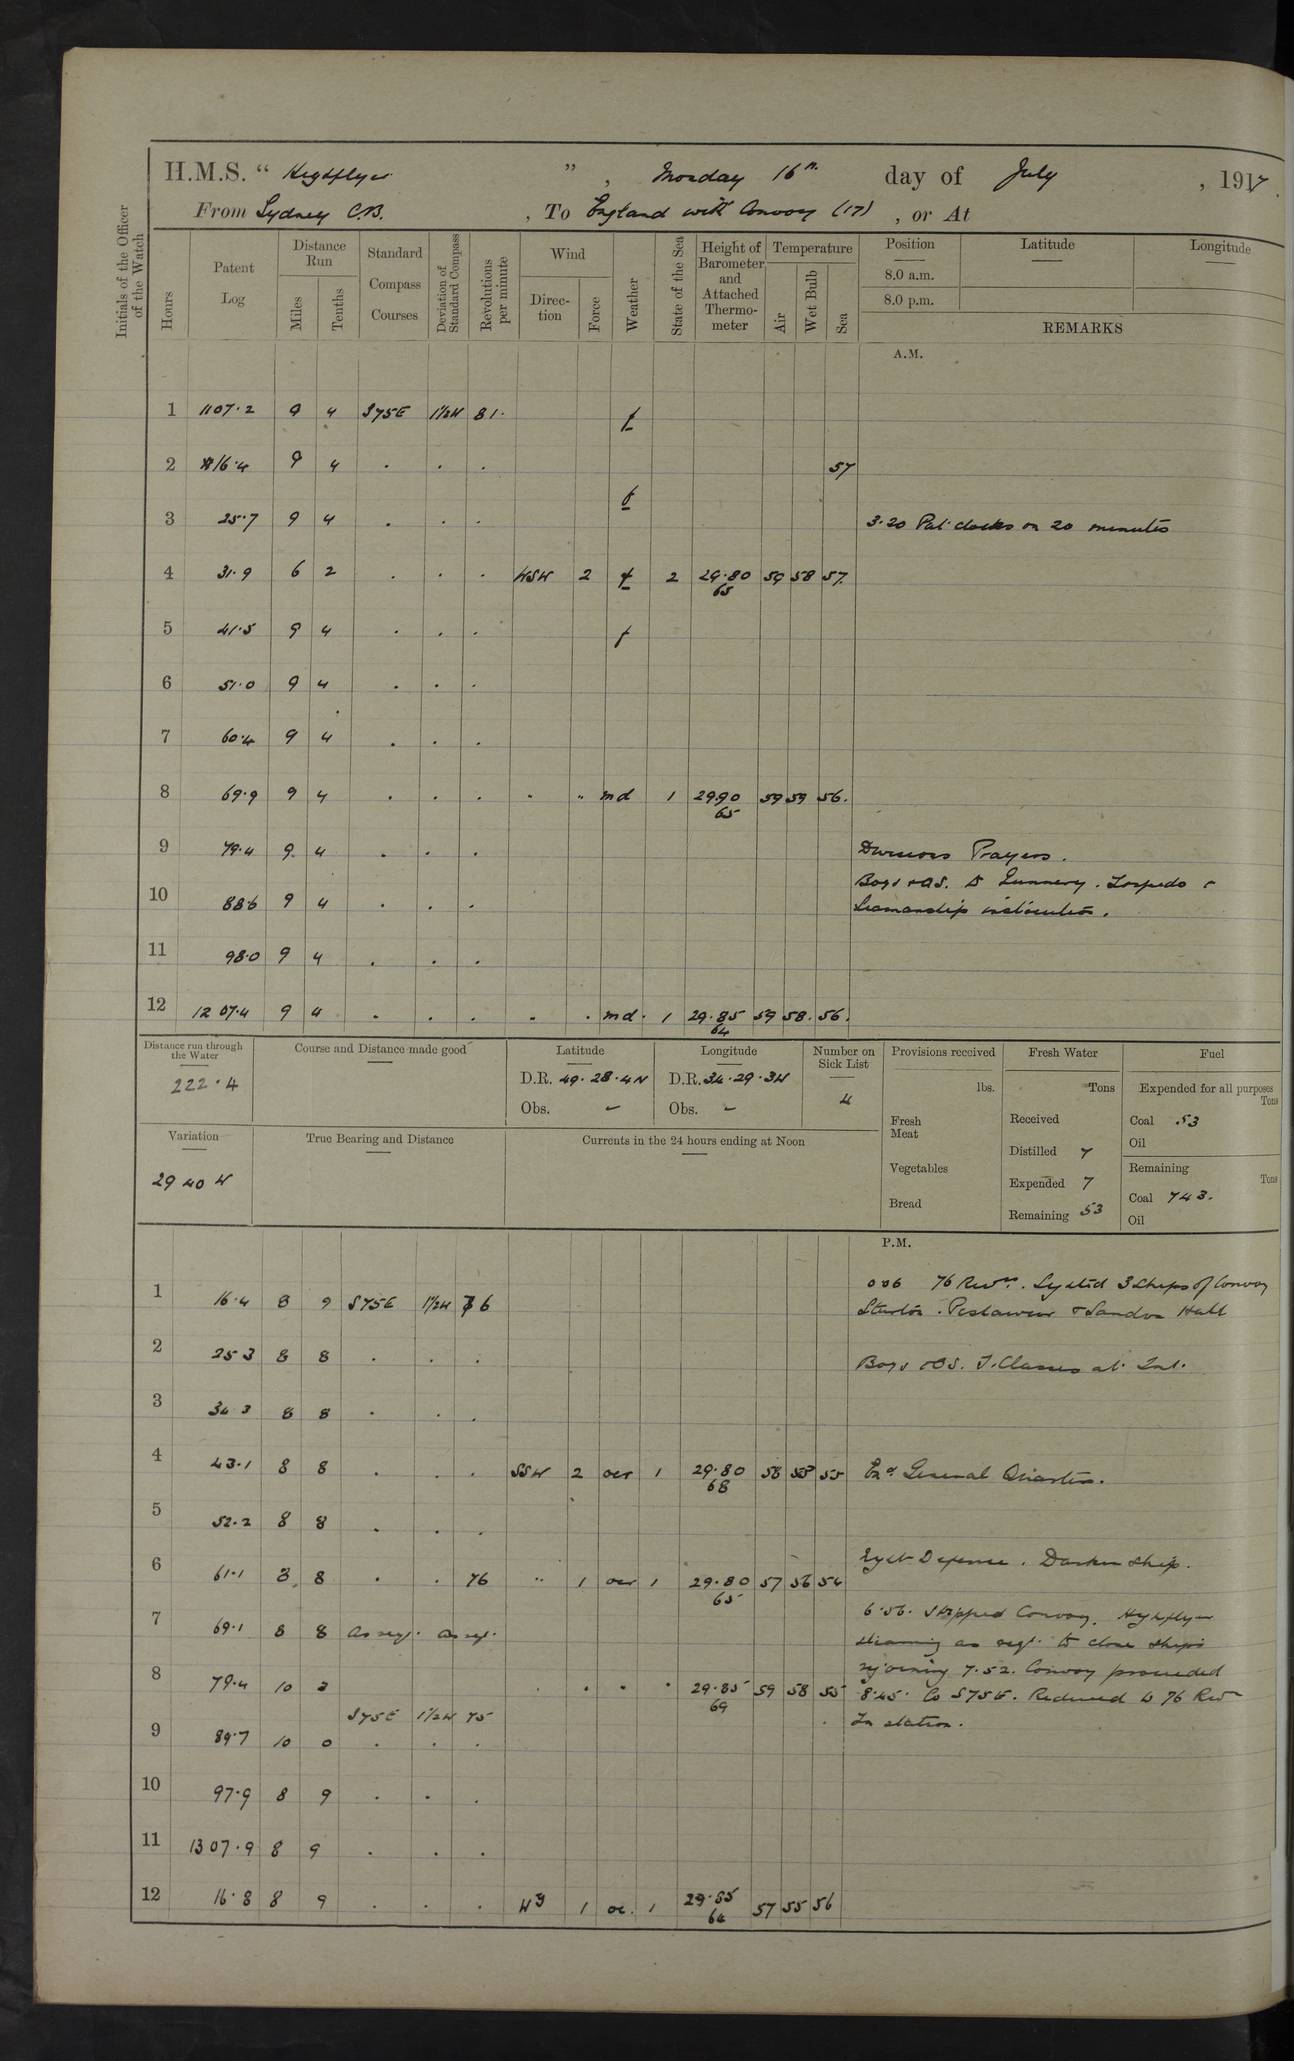 H.M.S. " Highflyer ", Monday 16th day of July, 1917
From Sydney C.B., To England with Convoy (17), or At
Initials of the Officer of the Watch
Hours
Patent Log
Distance Run
Miles
Tenths
Standard Compass Courses
Deviation of Standard Compass
Revolutions per minute
Wind
Direction
Force
Weather
State of the Sea
Height of Barometer and Attached Thermometer
Temperature
Air
Wet Bulb
Sea
Position
Latitude
Longitude
8.0 a.m.
8.0 p.m.
REMARKS
A.M.
1 1107.2 9 4 S75E 1½W 81. f
2 16.4 9 4 . . . 57
f
3 25.7 9 4 . . . 3.20 Put clocks on 20 minutes
4 31.9 6 2 . . . WSW 2 f 2 29.80 59 58 57.
65
5 41.5 9 4 . . . f
6 51.0 9 4 . . .
7 60.4 9 4 . . .
8 69.9 9 4 . . . " " md 1 29.90 59 59 56.
65
9 79.4 9 4 . . . Divisions Prayers.
10 88.6 9 4 . . . Boys & OS. to Gunnery. Torpedo &
Seamanship instruction.
11 98.0 9 4 . . .
12 1207.4 9 4 . . . . . md. 1 29.85 59 58. 56.
64
Distance run through the Water
222.4
Course and Distance made good
Latitude
D.R. 49.28.4N
Obs. –
Longitude
D.R. 34.29.3W
Obs. –
Number on Sick List
4
Provisions received
lbs.
Fresh Meat
Vegetables
Bread
Fresh Water
Tons
Received
Distilled 7
Expended 7
Remaining 53
Fuel
Expended for all purposes
Tons
Coal .53
Oil
Remaining
Tons
Coal 743.
Oil
Variation
29 40 W
True Bearing and Distance
Currents in the 24 hours ending at Noon
P.M.
006 76 Revs. Sighted 3 Ships of Convoy
1 16.4 8 9 S75E 1½W 76 & Sandon Hall
2 25.3 8 8 . . . Boys & OS. T. Classes at Inst.
3 34.3 8 8 . . .
4 43.1 8 8 . . . SSW 2 ocr 1 29.80 58 55 55 Exd General Quarters.
68
5 52.2 8 8 . . .
Night Defence. Darken Ship.
6 61.1 8 8 . . 76 " 1 ocr 1 29.80 57 56 54
65
6.56. Stopped Convoy. Highflyer
7 69.1 8 8 as reqt. as reqt. steaming as reqt. to close ships
rejoining 7.52. Convoy proceeded
8 79.4 10 3 . . . . 29.85 59 58 55 8.45. Co S75E. Reduced to 76 Revs
69
S75E 1½W 75 In station.
9 89.7 10 0 . . .
10 97.9 8 9 . . .
11 1307.9 8 9 . . .
12 16.8 8 9 . . . Wy 1 oc. 1 29.85 57 55 56
64